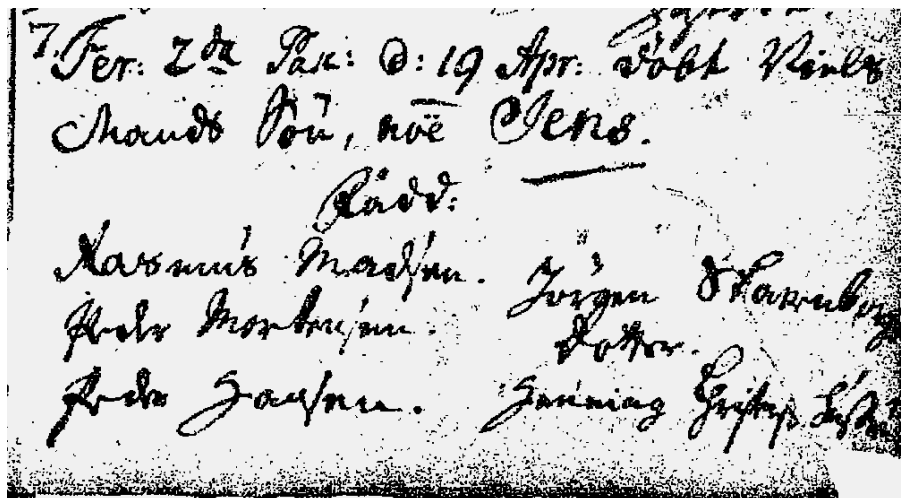 7. Fer: 2da Pas: d: 19 Apr: döbt Niels
Mands Sön, nöe Jens.
Fadd:
Rasmus Madsen. Jörgen Skarenborg
Peder Mortensen. Dotter.
Peder Hansen. Henning